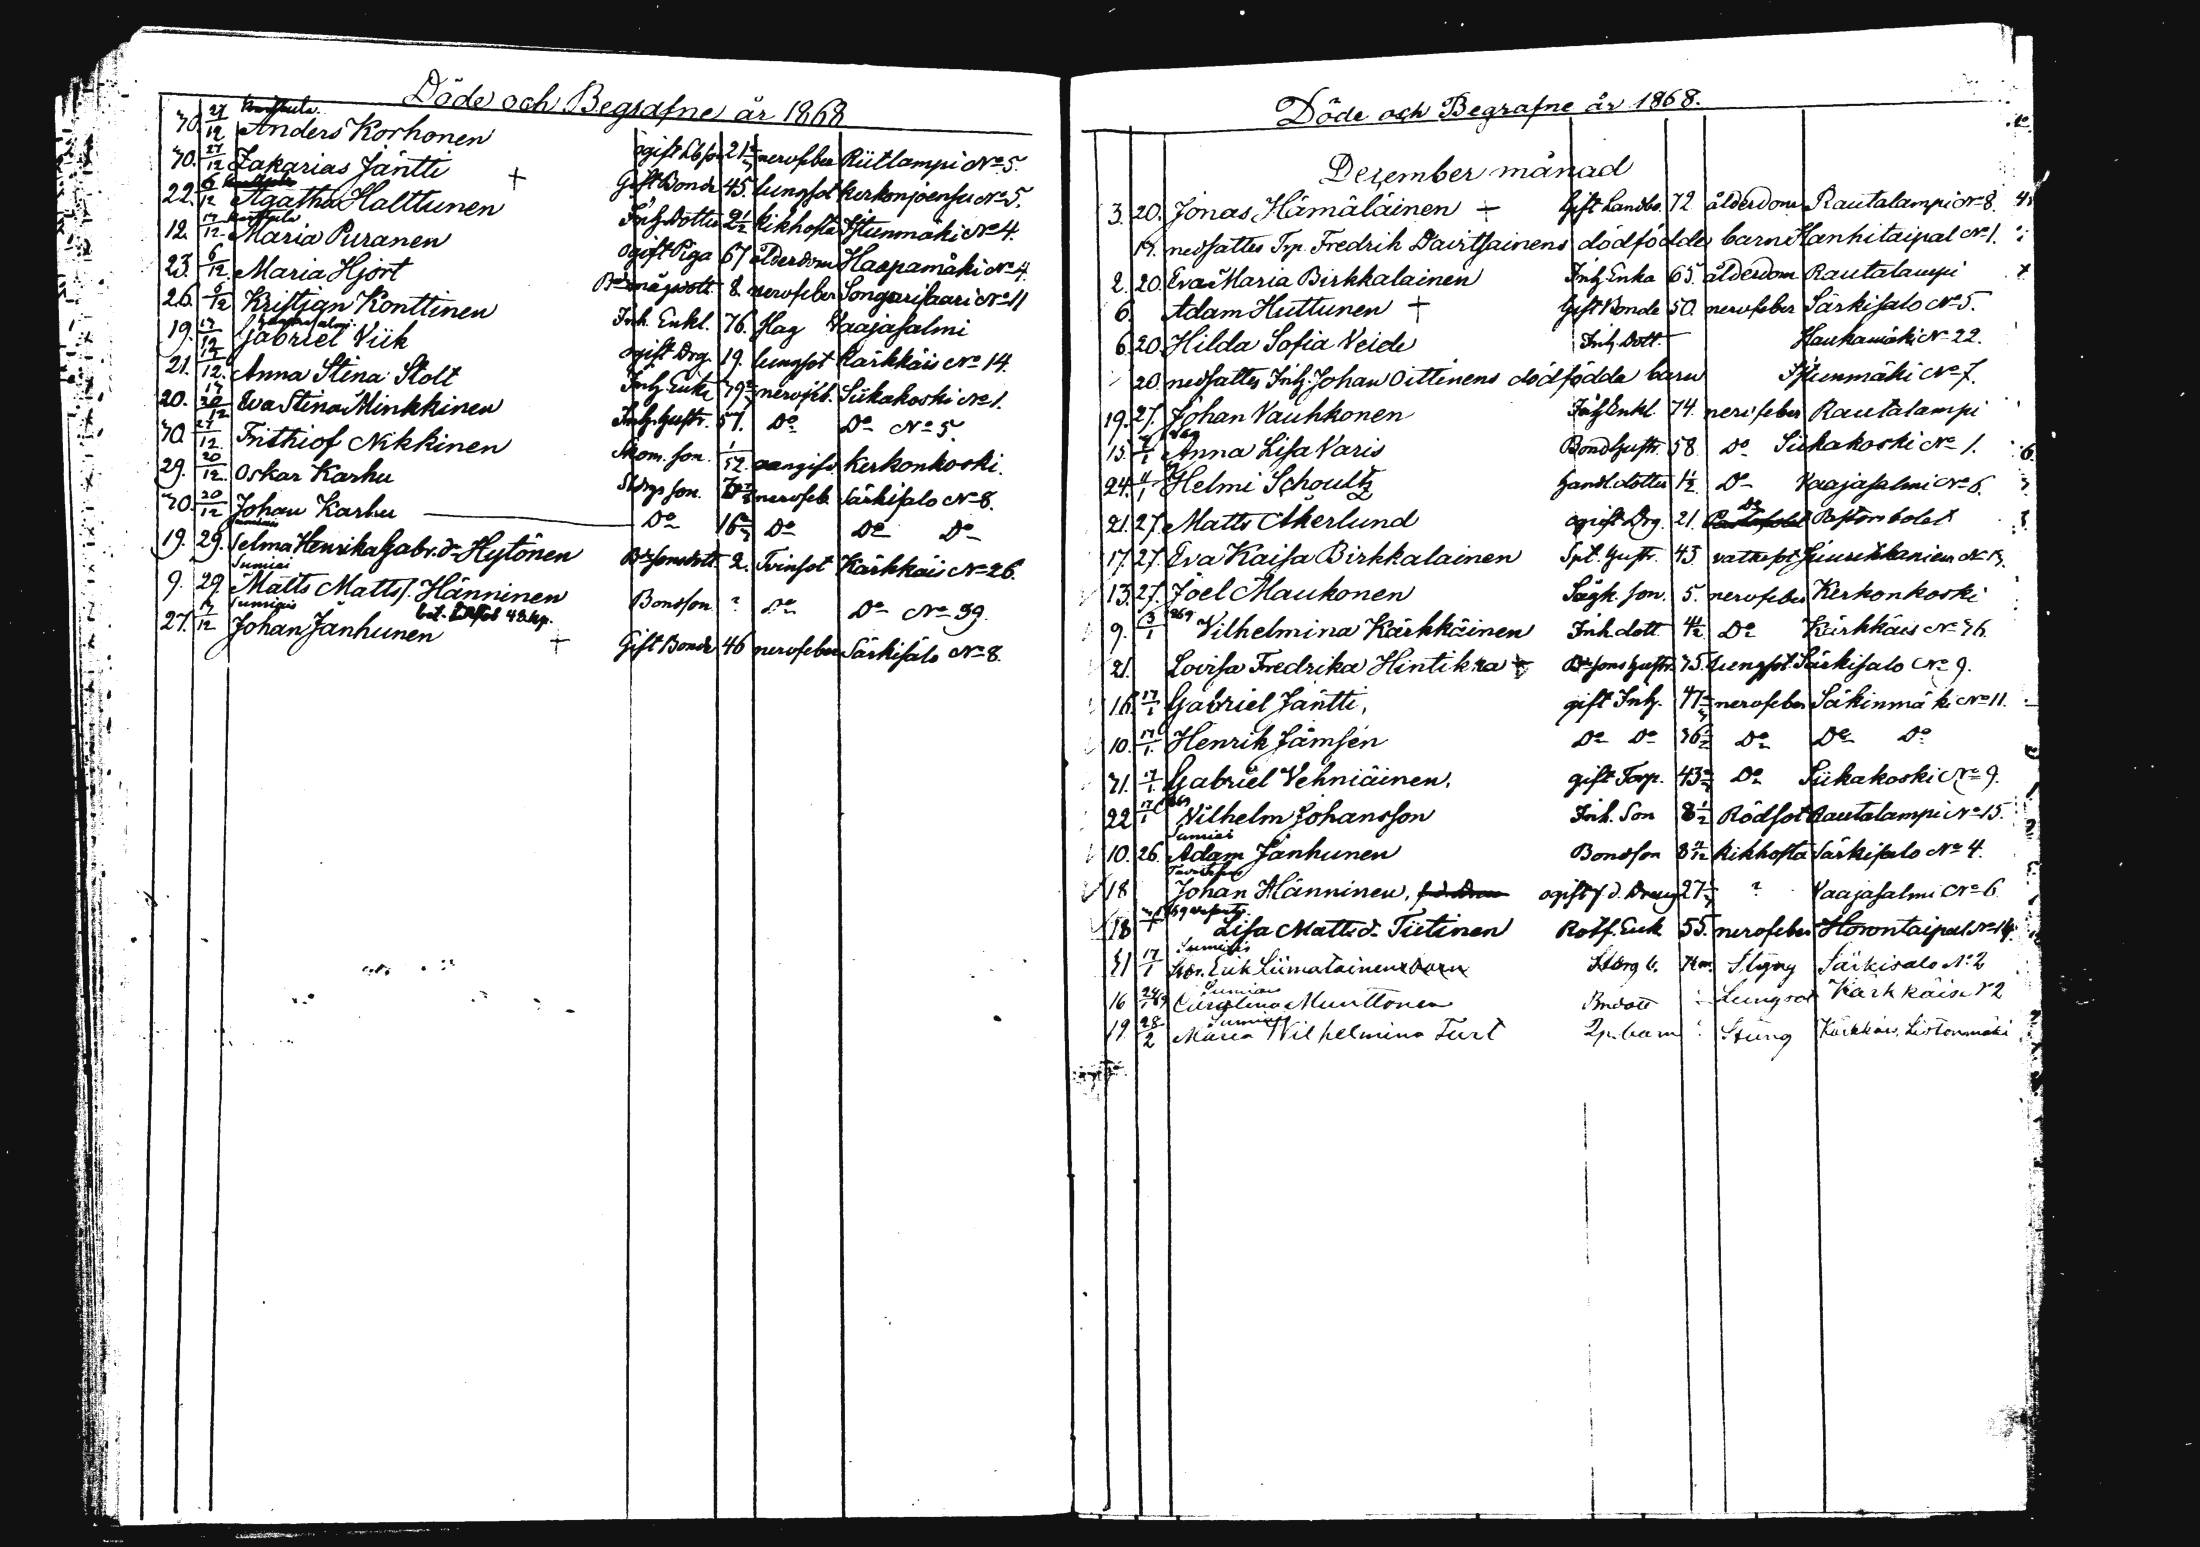 Döde och Begrafne år 1868
30. 27/12 Anders Korhonen ogift 21 nervfeber Riitlampi No 5.
30. 27/12 Zakarias Jäntti + Gift Bonde 45. lungsot Kerkonjoensu No 5.
22. 6/12 Agatha Halttunen Inh. Dotter 2 1/2 kikhosta Istunmäki No 4.
12. 13/12 Maria Puranen ogift Piga 67 ålderdom Haapamäki No 4.
23. 6/12 Maria Hjort 8. nervfeber Songarisaari No 11
26. 6/12 Kristjan Konttinen Inh. Enkl. 76. Slag Vaajasalmi
19. 13/12 Gabriel Viik ogift Drg. 19. lungsot Kärkkäis No 14.
21. 12. Anna Stina Stolt Inh. Enka 79 nervfeb. Siikakoski No 1.
20. 20/12 Eva Stina Minkkinen Inh. hustr. 57. Do Do No 5.
30. 27/12 Frithiof Nikkinen Skom. son. 1/52 oangifv. Kerkonkoski.
29. 20/12 Oskar Karhu son. nervfeb. Särkisalo No 8.
30. 20/12 Johan Karhu Do 16 Do Do Do
19. 29. Selma Henrika Gabr. d. Hytönen 2. Tvinsot Kärkkäis No 26.
Sumiais
9. 29. Matts Matts S. Hänninen Bondson ? Do Do No 39.
Sumiais
27. 13/12 Johan Janhunen + Gift Bonde 46 nervfeber Särkisalo No 8.
Döde och Begrafne år 1868.
December månad
3. 20. Jonas Hämäläinen + Gift Landbo. 72 ålderdom Rautalampi No 8.
19. nedsattes Trp. Fredrik Dairtsainens dödfödde barn Hanhitaipal No 1.
2. 20. Eva Maria Birkkalainen Inh. Enka 65. ålderdom Rautalampi
6. Adam Huttunen + Gift Bonde 50. nervfeber Särkisalo No 5.
6. 20. Hilda Sofia Veide Inh. Dott. Haukamäki No 22.
20. nedsattes Inh. Johan Oittinens dödfödda barn Istunmäki No 7.
19. 27. Johan Vauhkonen Inh. Enkl. 74. nervfeber Rautalampi
15. Anna Lisa Varis Bond. hustr. 58. Do Siikakoski No 1.
24. Helmi Schoultz Handl. dotter 1 1/2 Do Vaajasalmi No 6.
21. 27. Matts Åkerlund ogift Drg. 21. Do Pastorsbolet
17. 27. Eva Kaisa Birkkalainen hustr. 43. vattusot No 13.
13. 27. Joel Maukonen son. 5. nervfeber Kerkonkoski
9. 3/1 869 Vilhelmina Kärkkäinen Inh. dott. 4 1/2 Do Kärkkäis No 36.
21. Lovisa Fredrika Hintikka + hustr. 35. lungsot Särkisalo No 9.
16. 17/1 Gabriel Jäntti, gift Inh. nervfeber Säkinmäki No 11.
10. 17/1 Henrik Jämsén Do Do 36 Do Do Do
31. 17/1 Gabriel Vehniäinen, gift Torp. 43 Do Siikakoski No 9.
22 17/1 869 Vilhelm Johansson Inh. Son 8 1/2 Rödsot Rautalampi No 15.
Sumiais
10. 26. Adam Janhunen Bondson 8 kikhosta Särkisalo No 4.
18 Johan Hänninen, ogift f. d. Dreng 27 ? Vaajasalmi No 6
18 Lisa Mattsd. Tiitinen Rotf. Enk. 55. nervfeber Horontaipal No 14.
Sumiais
31 17/1 Erik Liimatainens barn Särkisalo No 2
Sumiais
16 24/1 69 Carolina Munttonen Bndott Lungsot Kärkkäis No 2
Sumiais
19 28/2 Maria Vilhelmina Turt barn Kärkkäis,